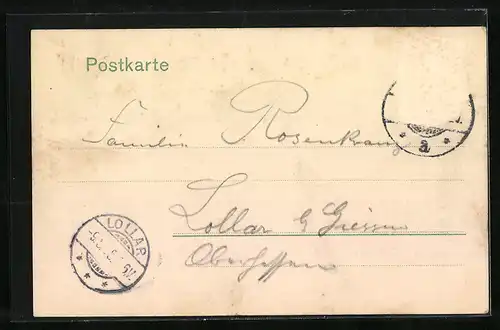 Postkarte
Familie P. Rosenkranz
Lollar b Giessen
Oberhessen
LOLLAR
a